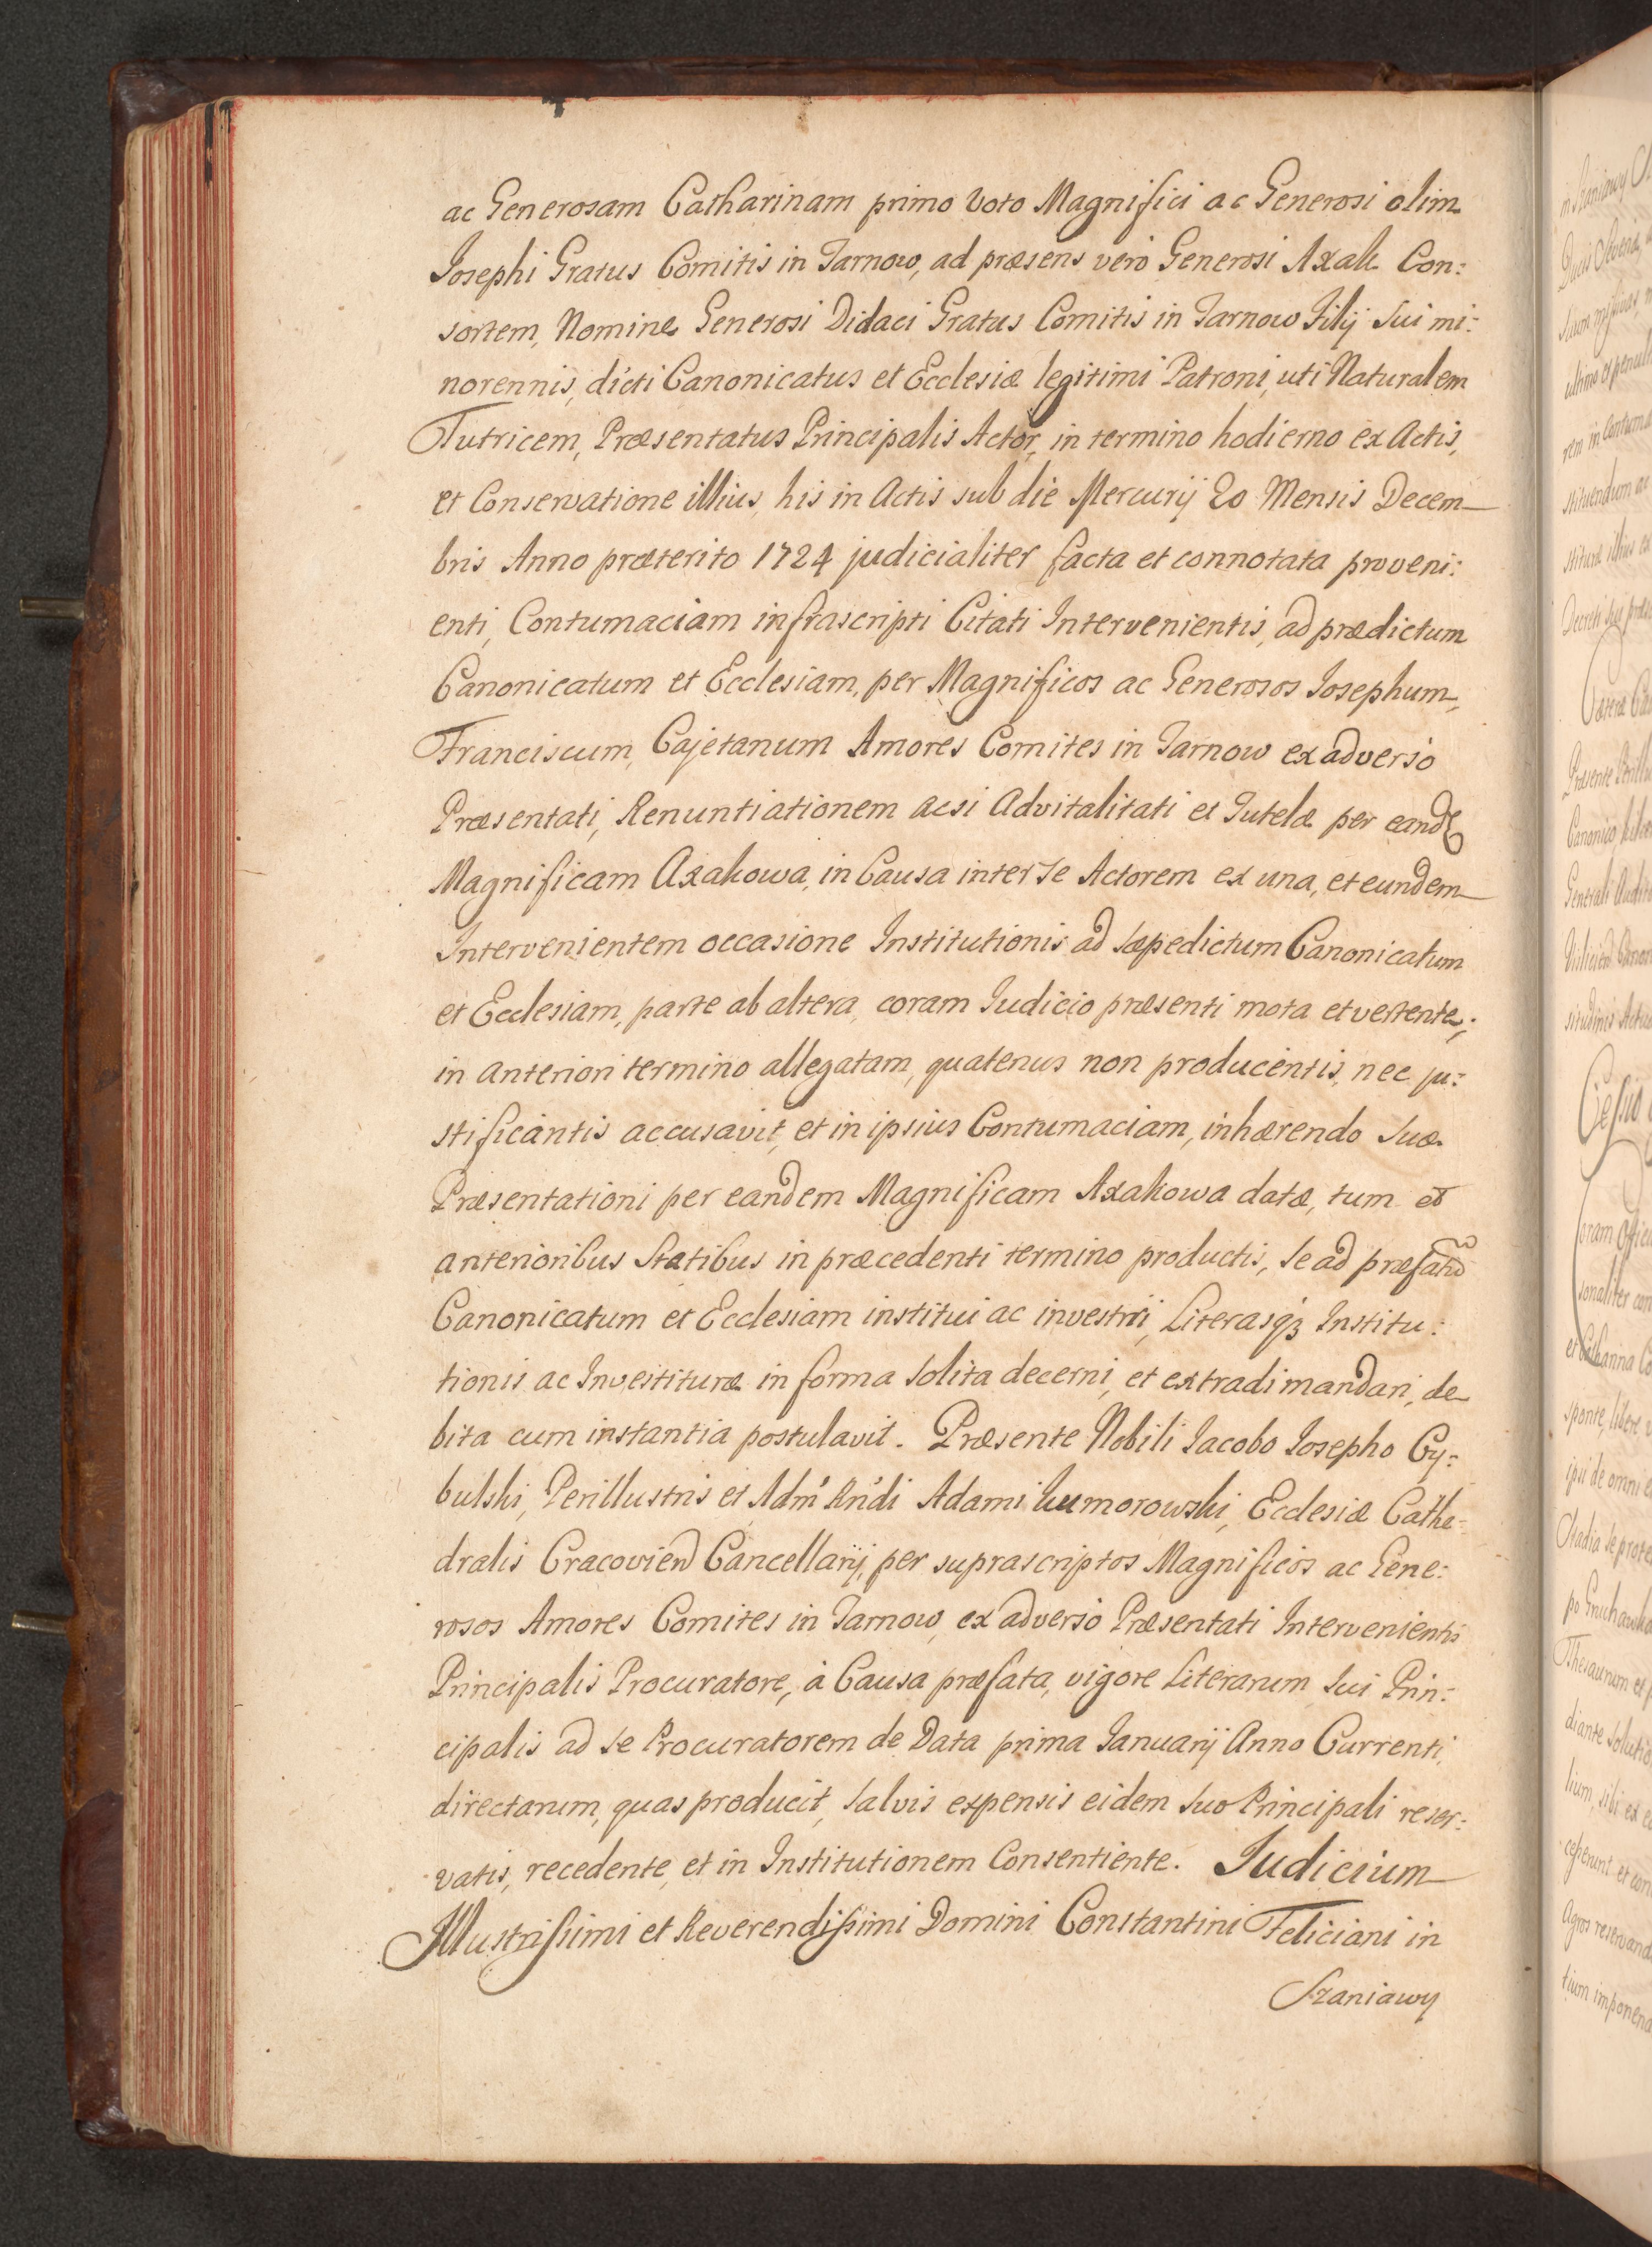 ac Generosam Catharinam primo Voto Magnifici ac Generosi olim
Josephi Gratus Comitis in Tarnow, ad præsens vero Generosi Axak Con:
sortem, Nomine Generosi Didaci Gratus Comitis in Tarnow Filij Sui mi:
norennis, dicti Canonicatus et Ecclesiæ legitimi Patroni, uti Naturalem
Tutricem, Præsentatus Principalis Actor, in termino hodierno ex Actis,
et Conservatione illius, his in Actis sub die Mercurij 20 Mensis Decem
bris Anno præterito 1724 judicialiter facta et connotata proveni:
enti, Contumaciam infrascripti Citati Intervenientis, ad prædictum
Canonicatum et Ecclesiam, per Magnificos ac Generosos Josephum,
Franciscum, Cajetanum Amores Comites in Tarnow ex adverso
Præsentati, Renuntiationem acsi Advitalitati et Tutelæ per eandē
Magnificam Axakowa, in Causa inter Se Actorem ex una, et eundem
Intervenientem occasione Institutionis ad sæpedictum Canonicatum
et Ecclesiam, parte ab altera, coram Judicio præsenti mota et vertente;
in anteriori termino allegatam, quatenus non producentis, nec ju:
stificantis accusavit, et in ipsius Contumaciam, inhærendo Suæ
Præsentationi per eandem Magnificam Axakowa datæ, tum et
anterioribus Statibus in præcedenti termino productis, Se ad præfatū
Canonicatum et Ecclesiam institui ac investiri, Literasq₃ Institu:
tionis ac Investituræ in forma Solita decerni, et extradi mandari, de
bita cum instantia postulavit. Præsente Nobili Jacobo Josepho Cy:
bulski, Perillustris et Adm' Rn'di Adami Kumorowski, Ecclesiæ Cathe:
dralis Cracovien̄ Cancellarij, per suprascriptos Magnificos ac Gene:
rosos Amores Comites in Tarnow, ex adverso Præsentati Intervenientis
Principalis Procuratore, à Causa præfata, vigore Literarum Sui Prin:
cipalis ad Se Procuratorem de Data prima Januarij Anno Currenti
directarum, quas producit, Salvis expensis eidem Suo Principali reser:
vatis, recedente, et in Institutionem Consentiente. Judicium
Illustrissimi et Reverendissimi Domini Constantini Feliciani in
Szaniawy